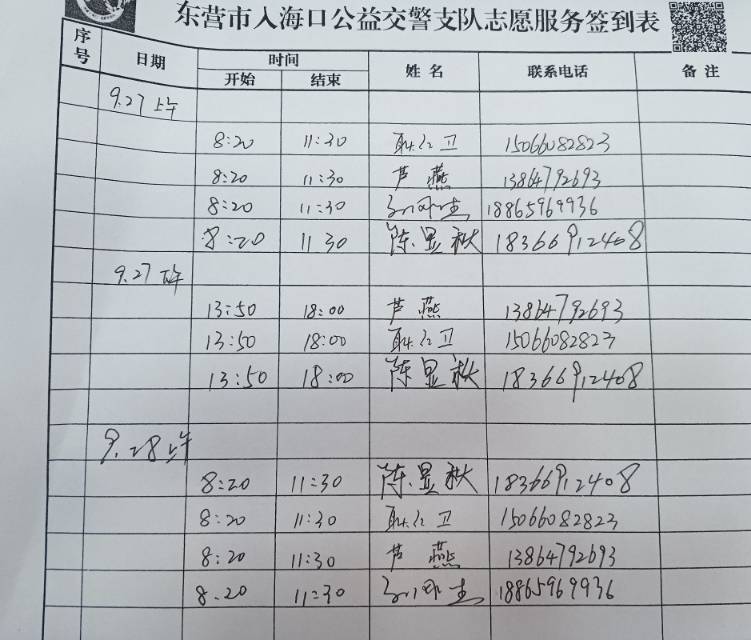 东营市入海口公益交警支队志愿服务签到表
序号 日期 时间 姓名 联系电话 备注
开始 结束
9.27上午
8:20 11:30 耿红卫 15066082823
8:20 11:30 芦燕 13864792693
8:20 11:30 18865969936
8:20 11 30 陈显秋 18366912408
9.27下午
13:50 18:00 芦燕 13864792693
13:50 18:00 耿红卫 15066082823
13:50 18:00 陈显秋 18366912408
9.28上午
8:20 11:30 陈显秋 18366912408
8:20 11:30 耿红卫 15066082823
8:20 11:30 芦燕 13864792693
8.20 11:30 18865969936